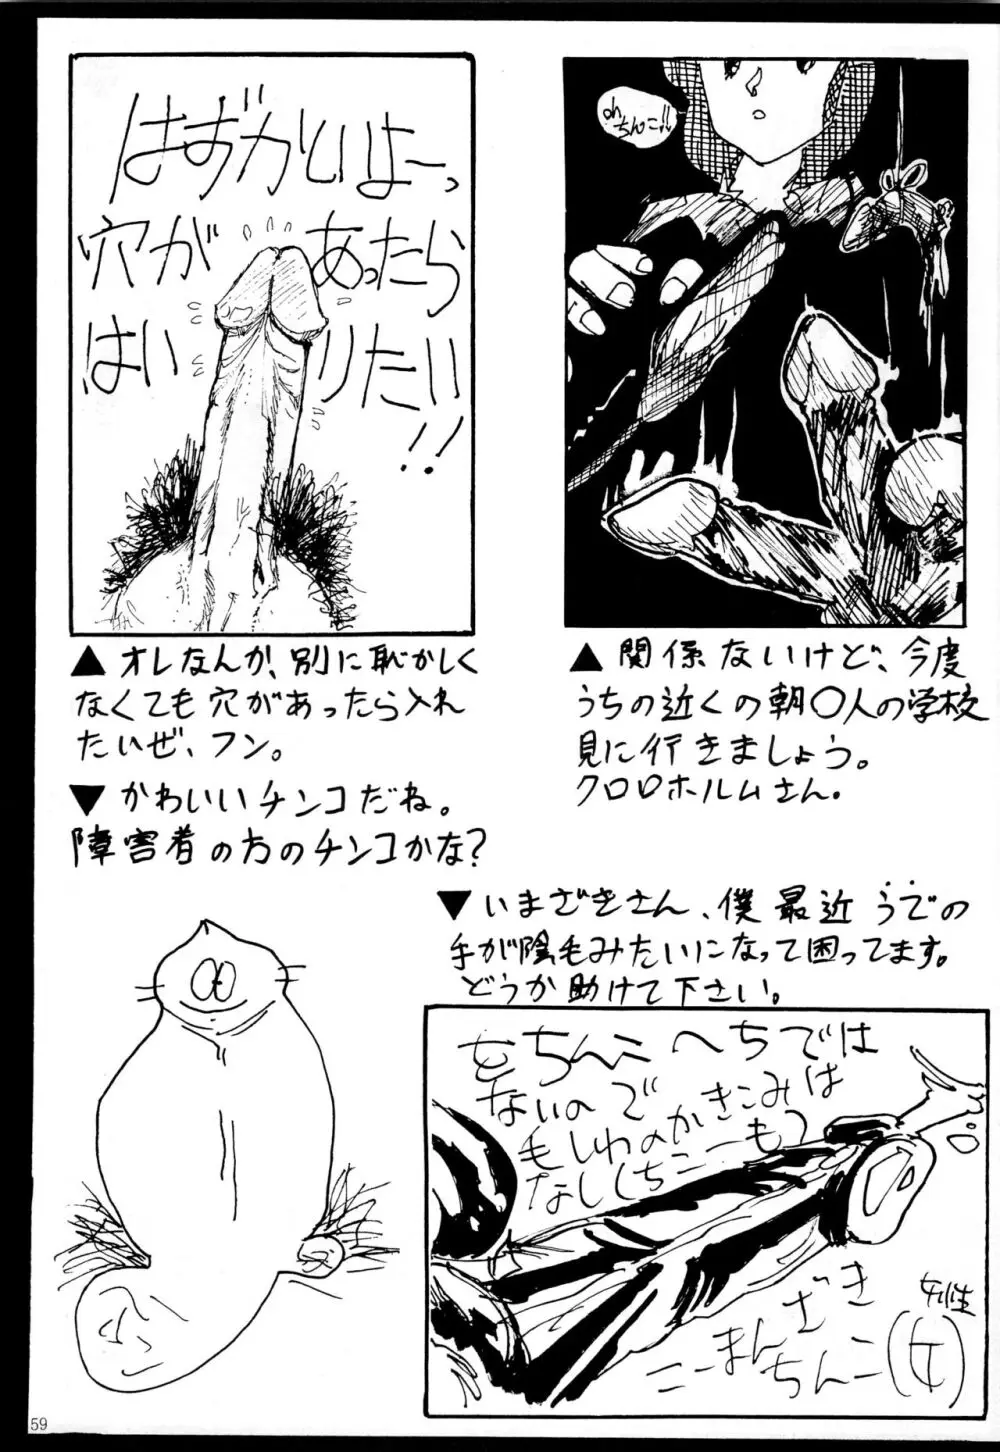 はずかしいよーっ
穴があったら
はいりたい!!
oh ちんこ!!
▲オレなんか、別に恥かしく
なくても穴があったら入れ
たいぜ、フン。
▲関係ないけど、今度
うちの近くの朝〇人の学校
見に行きましょう。
クロロホルムさん。
▼かわいいチンコだね。
障害者の方のチンコかな?
▼いまざきさん、僕最近うでの
手が陰毛みたいになって困ってます。
どうか助けて下さい。
ちんこへちでは
ないのでかきこみは
もしわのかきこみは
なし(ちこーも)
こーまんざき
ちんこ(女)
女性
59